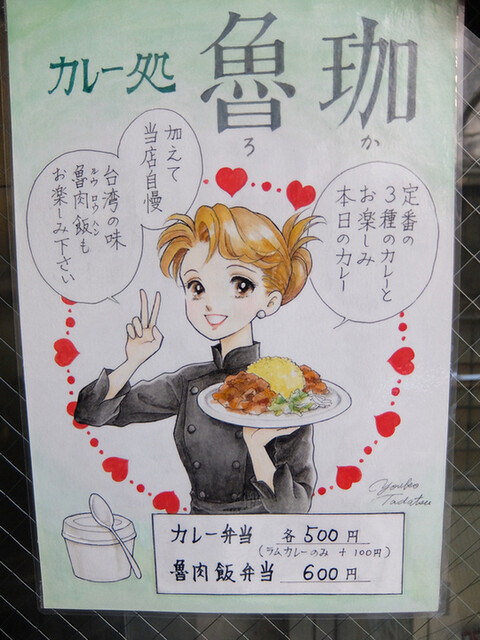 カレー処
魯珈
ろか
定番の
3種のカレーと
お楽しみ
本日のカレー
加えて
当店自慢
台湾の味
ルウロウハン
魯肉飯も
お楽しみ下さい
Youko
Tadatsu
カレー弁当 各500円
(ラムカレーのみ +100円)
魯肉飯弁当 600円